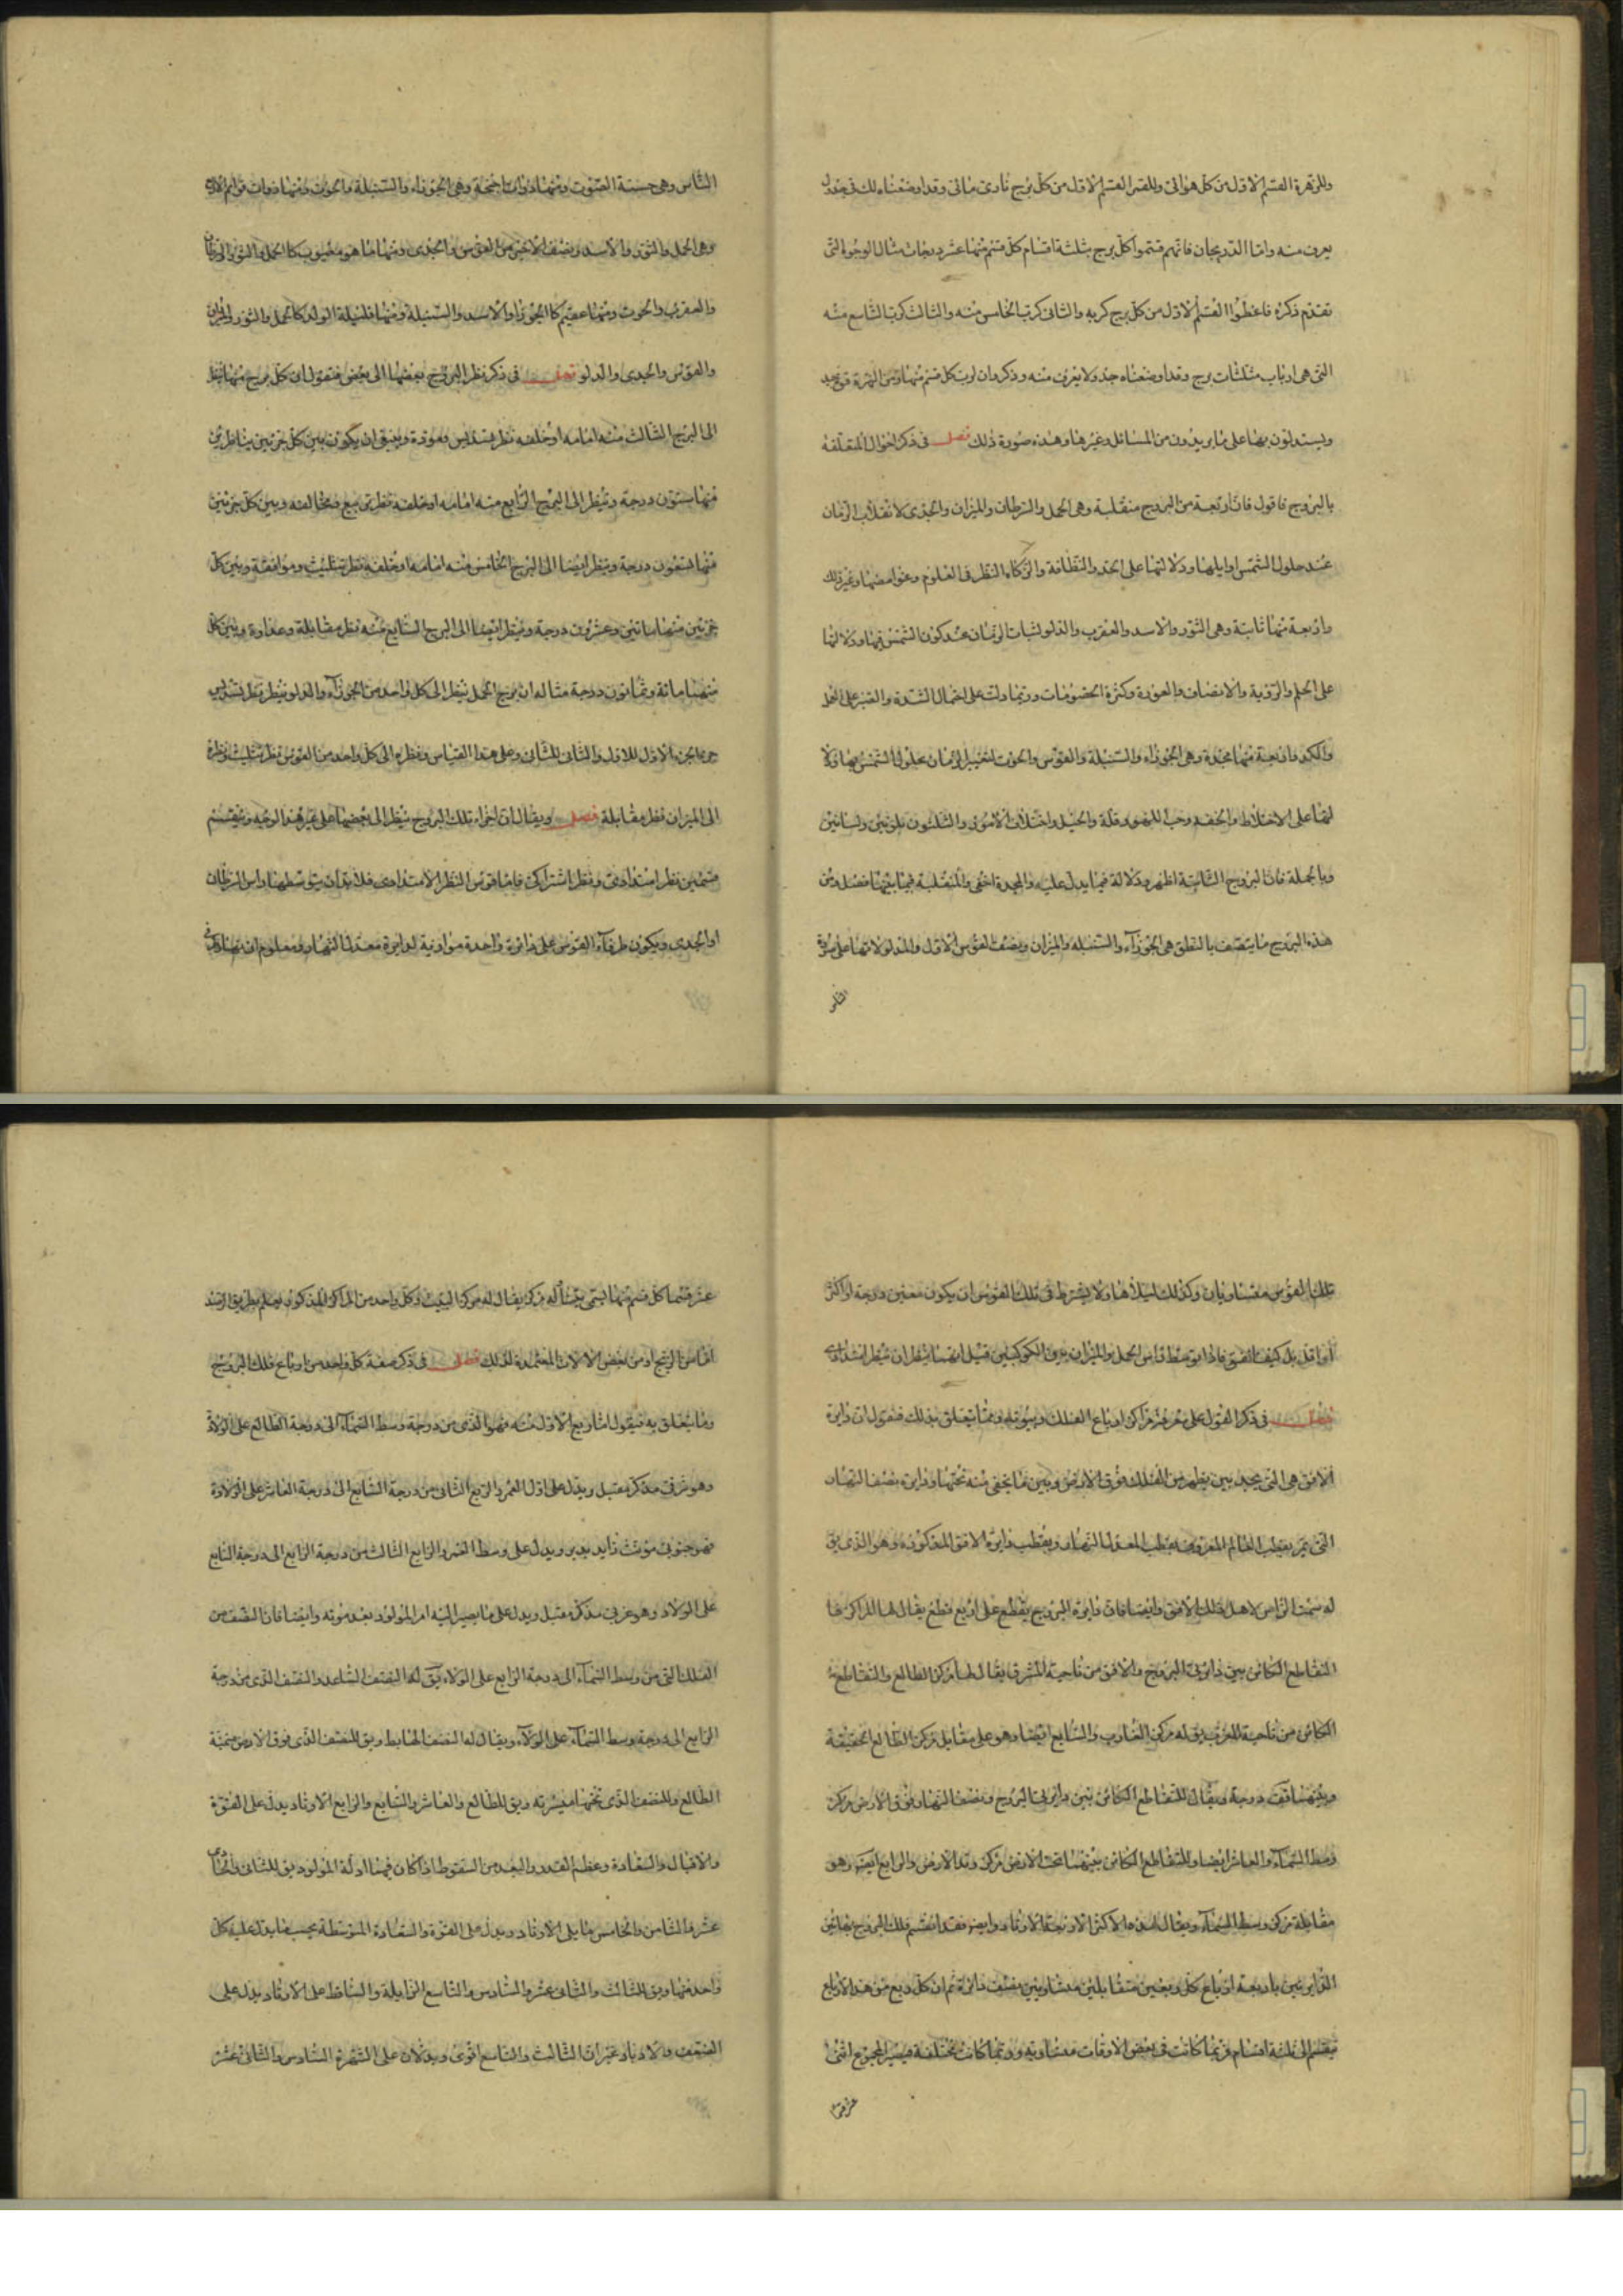 وللزهرة القسم الاول من كل هوائى وللقمر القسم الاول من كل برج نارى مائى وقد اوضعنا ذلك فى جدول
يعرف منه واما الدريجان فانهم قسموا كل برج بثلثة اقسام كل قسم منها عشر درجات مثال الوجوه التى
تقدم ذكره فاعطوا القسم الاول من كل برج كربه والثانى كرب الخامس منه والثالث كرب التاسع منه
التى هى ارباب مثلثات برج وقد اوضعناه جدولا يعرف منه وذكروا ان لرب كل قسم منها
ويستدلون بها على ما يريدون من المسائل وغيرها وهذه صورة ذلك فصل فى ذكر احوال المتعلقة
بالبروج فاقول فان اربعة من البروج منقلبة وهى الحمل والسرطان والميزان والجدى لانقلاب الزمان
عند حلول الشمس اوايلها ودلالتها على الحد والنظافة والزكاء النظر فى العلوم وغوامضها وغير ذلك
واربعة منها ثابتة وهى الثور والاسد والعقرب والدلو لثبات الزمان عند كون الشمس فيها ودلالتها
على الحلم والرؤية والانصاف والعودة وكثرة الخصومات وربما دلت على احتمال الشدة والصبر على
والكد واربعة منها مجسدة وهى الجوزاء والسنبلة والقوس والحوت لتغيير الزمان بحلول الشمس بها ودلا
لتها على الاختلاط والخفة وحب اللهو وقلة والحيل واختلاف الامور والتلون بلونين ولسانين
وبالجملة فان البروج الثابتة اظهر دلالة فيما يدل عليه والمجسدة اخفى والمنقلبة فيما بينهما فصل ومن
هذه البروج ما يتصف بالنطق هى الجوزاء والسنبله والميزان ونصف القوس الاول والدلو لانها على صورة
الناس
الناس وهى حسنة الصوت ومنها ذوات اجنحة وهى الجوزاء والسنبلة والحوت ومنها ذوات قوائم الاربع
وهى الحمل والثور والاسد ونصف الاخير من القوس والجدى ومنها ما هو معيوب كالحمل والثور والسرطان
والعقرب والحوت ومنها عقيم كالجوزا والاسد والسنبلة ومنها قليلة الولد كالحمل والثور والميزان
والقوس والجدى والدلو فصل فى ذكر نظر البروج بعضها الى بعض فنقول ان كل برج منها ينظر
الى البرج الثالث منه امامه او خلفه نظر تسديس ومودة وينبغى ان يكون بين كل جزئين يتناظرين
منها ستون درجة وينظر الى البرج الرابع منه امامه او خلفه نظر تربيع ومخالفه وبين كل جزئين
منها تسعون درجة وينظر ايضا الى البرج الخامس منه امامه او خلفه نظر تثليث وموافقة وبين كل
جزئين منهما مائتين وعشرون درجة وينظر ايضا الى البرج السابع منه نظر مقابلة وعداوة وبين كل
منهما مائة وثمانون درجة مثاله ان برج الحمل ينظر الى كل واحد من الجوزاء والدلو ينظر نظر تسديس
الجزء الاول للاول والثانى للثانى وعلى هذا القياس ونظره الى كل واحد من القوس نظر تثليث ونظره
الى الميزان نظر مقابلة فصل ويقال ان اجزاء تلك البروج ينظر الى بعضها على غير هذا الوجه وينقسم
قسمين نظر امتدادى ونظر اشتراكى فاما قوس النظر الامتدادى فلا بد ان يتوسطها راس السرطان
او الجدى ويكون طرفاء القوس على دائرة واحدة موازية لدايرة معدل النهار ومعلوم ان
تلك القوس متساويان وكذلك ليلاها ولا يشترط فى تلك القوس ان يكون معين درجة او اكثر
او اقل بل كيف اتفق فاذا توسط راس الحمل والميزان بين الكوكبين قيل انهما ينظران
فصل فى ذكر القول على معرفة مراكز ارباع الفلك وبيوته وما يتعلق بذلك فنقول ان دايرة
الافق هى التى يحد بين يظهر من الفلك فوق الارض وبين ما يخفى منه تحتها ودايرة نصف النهار
التى يمر بقطب العالم المعروفة بقطب المعدل النهار وبقطب دايرة الافق المذكوره وهو الذى يق
له سمت الراس لاهل ذلك الافق وايضا فان دايرة البروج يقطع على اربع قطع يقال لها المراكز فا
التقاطع الكائن بين دايرتى البروج والافق من ناحية المشرق يقال لها مركز الطالع والتقاطعة
الكائن من ناحية المغرب يق له مركز الغارب والسابع ايضا وهو على مقابل مركز الطالع الحقيقة
وبينهما قف درجة ويقال للتقاطع الكائن بين دايرتى البروج ونصف النهار فوق الارض مركز
وسط السماء والعاشر ايضا وللتقاطع الكائن بينهما تحت الارض مركز وتد الارض والرابع ايضا وهو
مقابلة مركز وسط السماء ويقال لهذه المراكز الاربعة الاوتاد وايضا فقد انقسم فلك البروج بهاتين
الدايرتين باربعة ارباع كل ربعين متقابلين متساويين بنصف دائرة ثم ان كل ربع من هذه الارباع
ينقسم الى ثلثة اقسام فربما كانت فى بعض الاوقات متساويه وربما كانت مختلفة فيصير المجموع اثنى
عشر قسما
عشر قسما كل قسم منها يسمى بيتا له مركز يقال له مركز البيت وكل واحد من المراكز المذكوره يعلم بطريق الرصد
اما من الزيج او من بعض الالات المعتمدة لذلك فصل فى ذكر صفة كل واحد من ارباع فلك البروج
وما يتعلق به فنقول اما ربع الاول منه فهو الذى من درجة وسط السماء الى درجة الطالع على الولاء
وهو شرقى مذكر مقبل ويدل على اول العمر والربع الثانى من درجة السابع الى درجة العاشر على الولاء
فهو جنوبى مؤنث زايد يدبر ويدل على وسط العمر والرابع الثالث من درجة الرابع الى درجة السابع
على الولاء وهو غربى مذكر مقبل ويدل على ما يصير اليه امر المولود بعد موته وايضا فان النصف من
الفلك التى من وسط السماء الى درجة الرابع على الولاء يق له النصف الصاعد والنصف الذى من درجة
الرابع الى درجة وسط السماء على الولاء ويقال له النصف الهابط ويق للنصف الذى فوق الارض ميمنة
الطالع وللنصف الذى تحتها ميسرته ويق للطالع والعاشر والسابع والرابع الاوتاد يدل على القوة
والاقبال والسعادة وعظم القدر والبعد من السقوط اذا كان فيها ادلة المولود يق للثانى والحادى
عشر والثامن والخامس ما يلى الاوتاد ويدل على القوة والسعادة المتوسطة بحسب ما يدل عليه كل
واحد منها ويق للثالث والثانى عشر والسادس والتاسع الزايلة والساقط على الاوتاد يدل على
الضعف والادبار غير ان الثالث والتاسع اقوى ويدلان على الشهرة السادس والثانى عشر